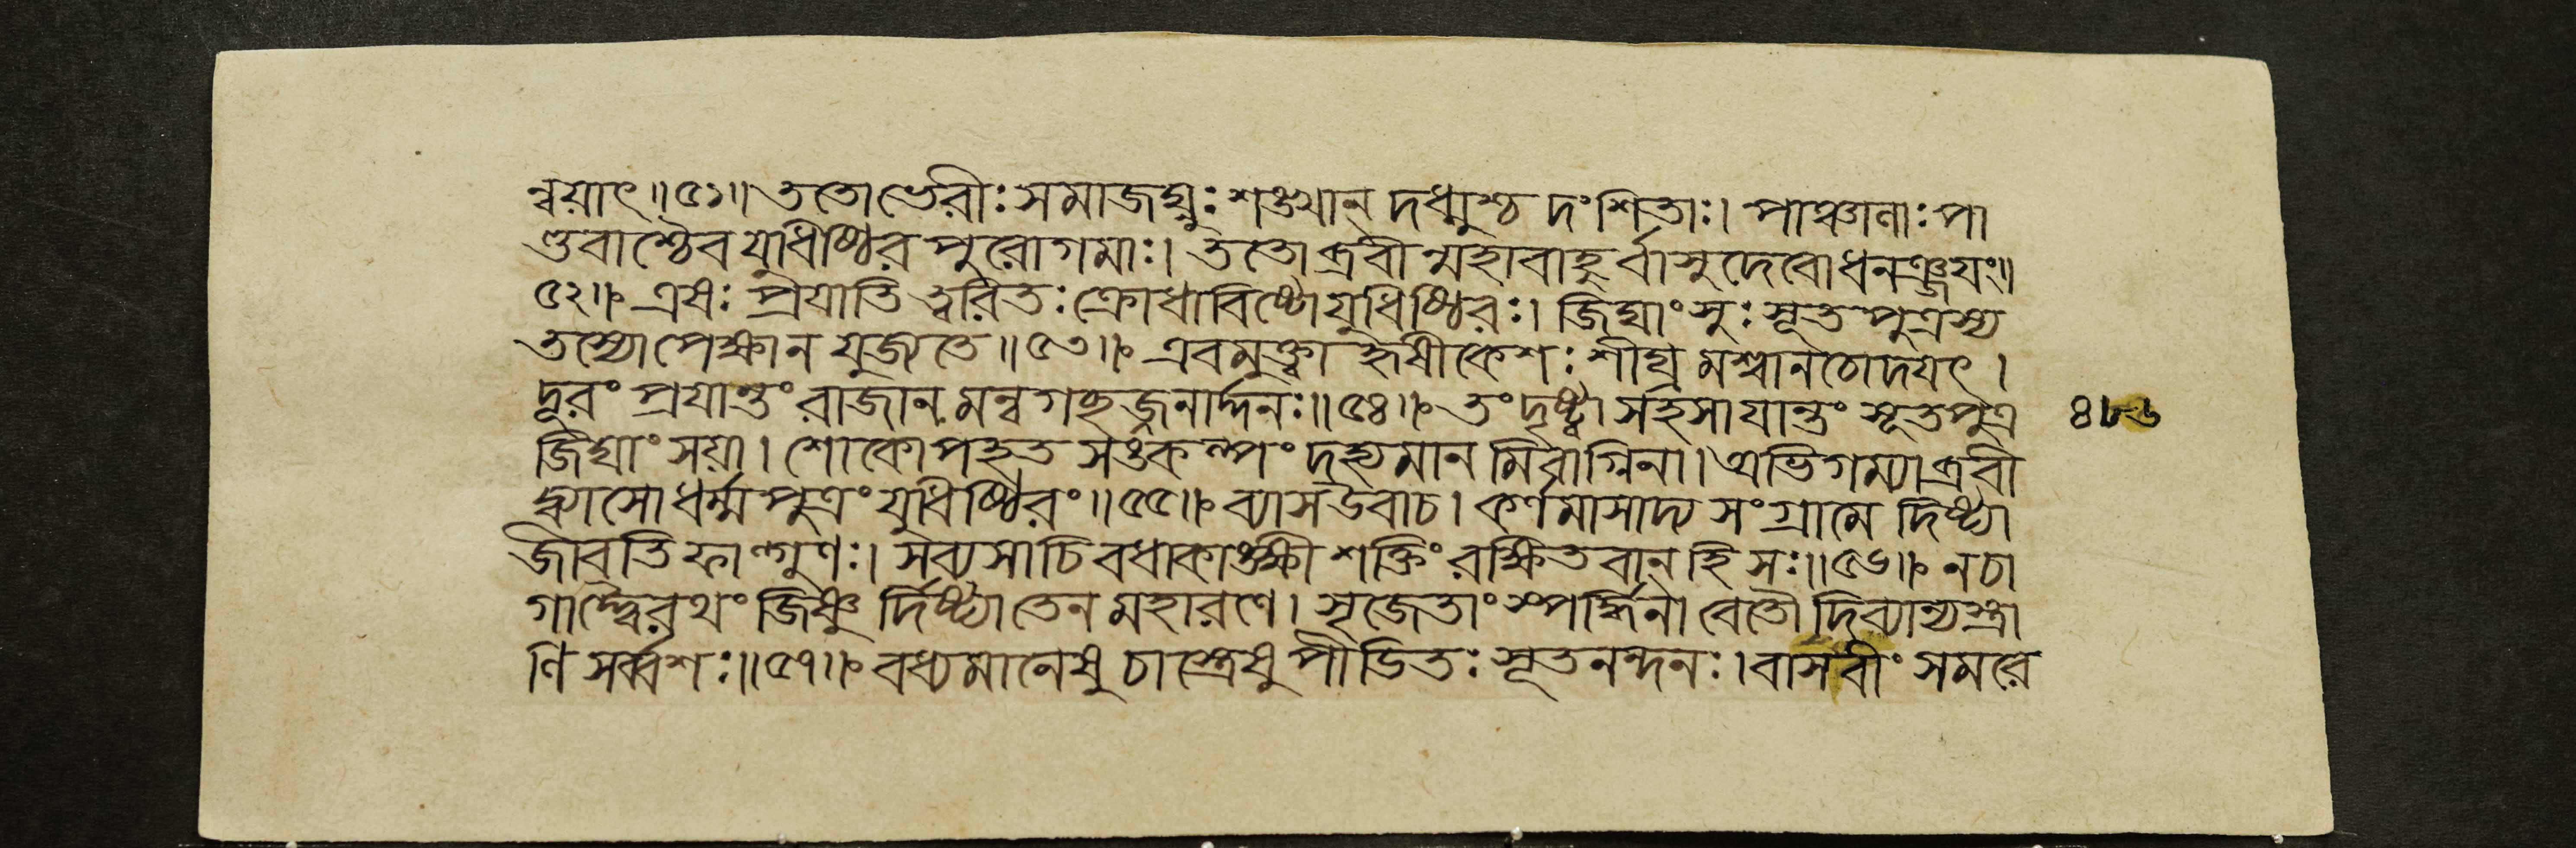 ন্বয়াৎ॥৫১॥ ততোভেরীঃ সমাজঘ্নুঃ শঙ্খান্ দধ্মুশ্চ দংশিতাঃ। পাঞ্চালাঃ পা
ণ্ডবাশ্চৈব যুধিষ্ঠির পুরোগমাঃ। ততোব্রবীন্মহাবাহুর্ব্বাসুদেবোধনঞ্জয়ং॥
৫২॥ এষঃ প্রয়াতি ত্বরিতঃ ক্রোধাবিষ্টোযুধিষ্ঠিরঃ। জিঘাংসুঃ সূতপুত্রস্য
তস্যোপেক্ষান যুজ্যতে॥৫৩॥ এবমুক্ত্বা হৃষীকেশঃ শীঘ্রমশ্বানচোদয়ৎ।
দূরং প্রয়ান্তং রাজানমন্বগচ্ছজ্জনার্দ্দনঃ॥৫৪॥ তং দৃষ্ট্বা সহসা যান্তং সূতপুত্র
জিঘাংসয়া। শোকোপহত সঙ্কল্পং দহ্যমানমিবাগ্নিনা। অভিগম্যাব্রবী
দ্ব্যাসোধর্ম্মপুত্রং যুধিষ্ঠিরং॥৫৫॥ ব্যাসউবাচ। কর্ণমাসাদ্য সংগ্রামে দিষ্ট্যা
জীবতি ফাল্গুণঃ। সব্যসাচিবধাকাঙ্ক্ষী শক্তিং রক্ষিতবান্ হি সঃ॥৫৬॥ নচা
গাদ্দ্বৈরথং জিষ্ণু র্দিষ্ট্যাতেন মহারণে। সৃজেতাং স্পর্দ্ধিনাবেতৌ দিব্যান্যস্ত্রা
ণি সর্ব্বশঃ॥৫৭॥ বধ্যমানেষু চাস্ত্রেষু পীডিতঃ সূতনন্দনঃ। বাসবীং সমরে
৪৮৬